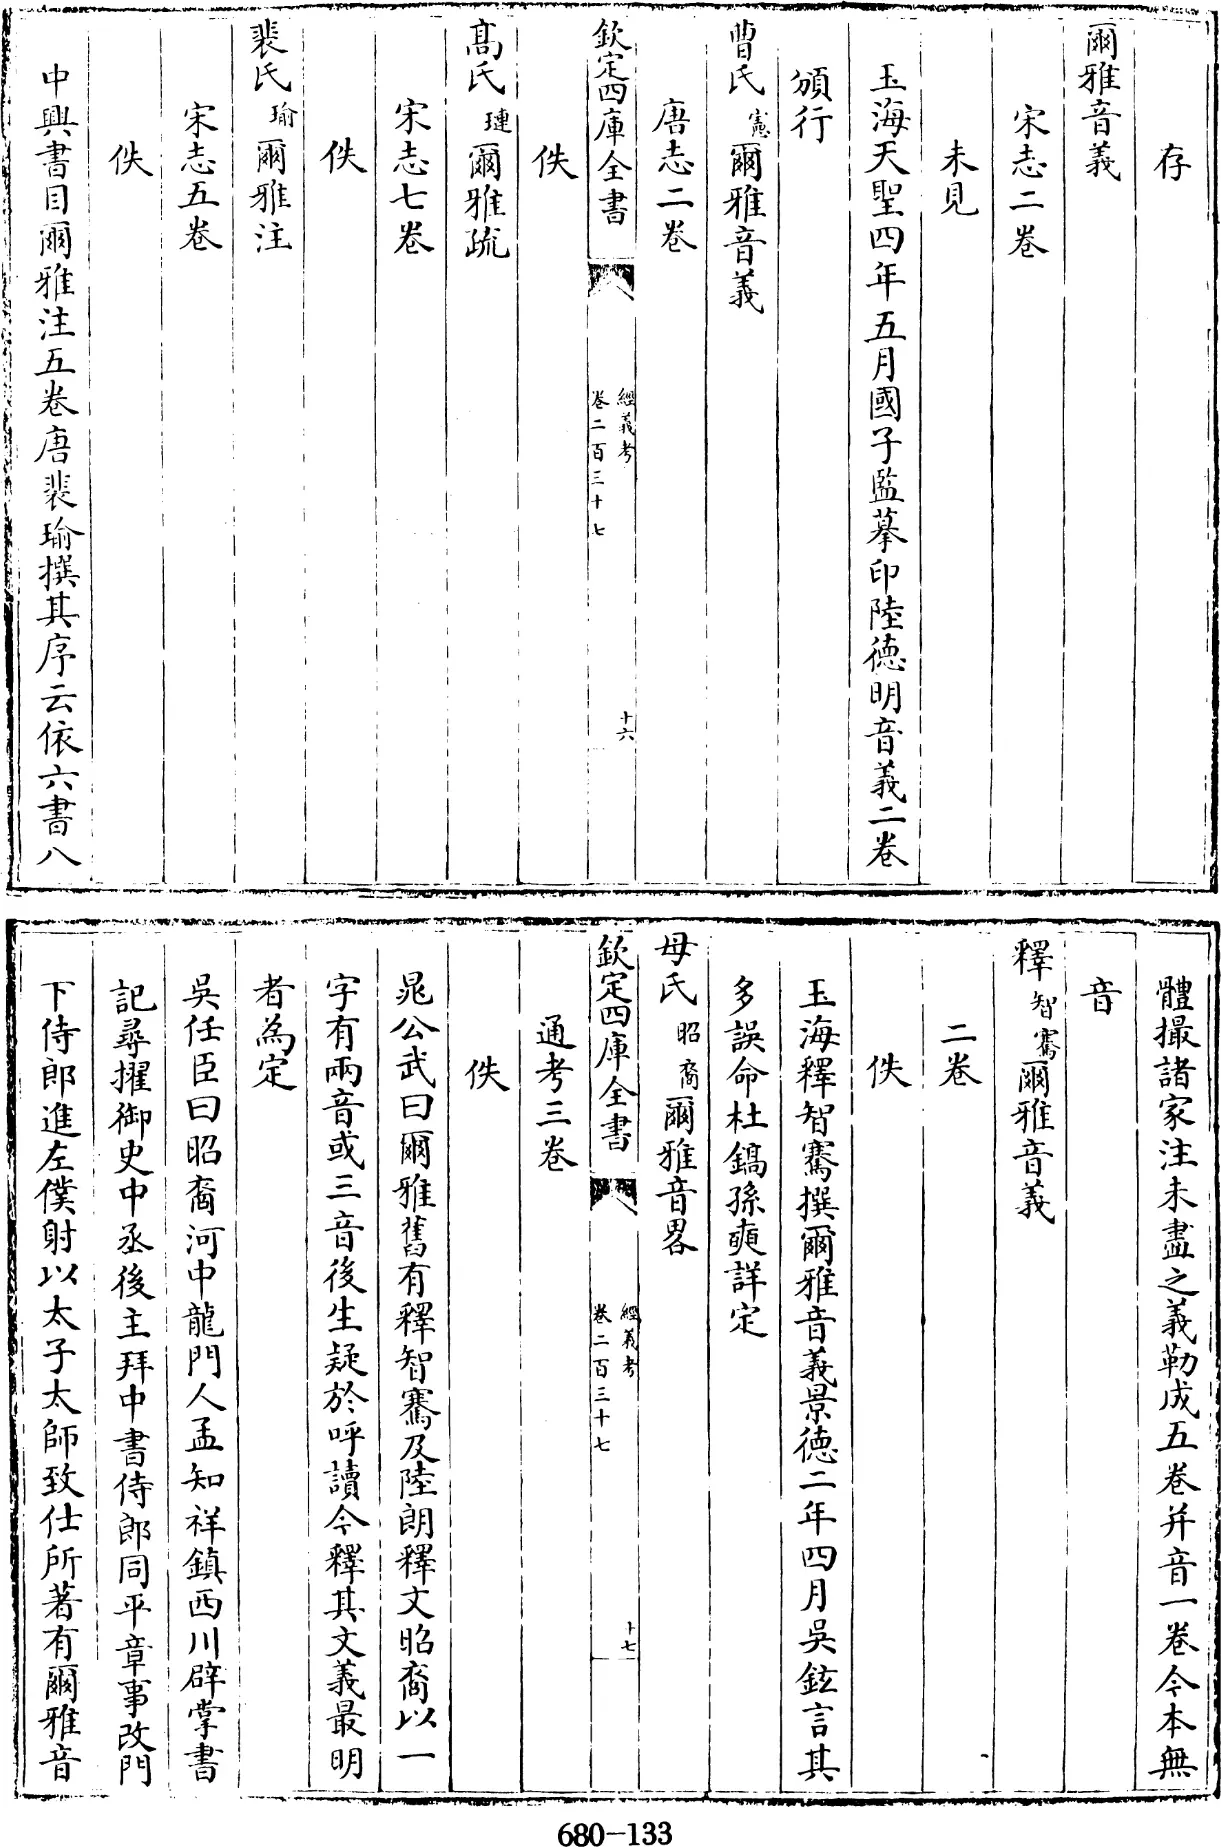 存
爾雅音義
宋志二卷
未見
玉海天聖四年五月國子監摹印陸德明音義二卷
頒行
曹氏憲爾雅音義
唐志二卷
欽定四庫全書
經義考
卷二百三十七
十六
佚
髙氏璉爾雅疏
宋志七卷
佚
裴氏瑜爾雅注
宋志五卷
佚
中興書目爾雅注五卷唐裴瑜撰其序云依六書八
體撮諸家注未盡之義勒成五卷并音一卷今本無
音
釋智騫爾雅音義
二卷
佚
玉海釋智騫撰爾雅音義景徳二年四月吳鉉言其
多誤命杜鎬孫奭詳定
母氏昭裔爾雅音畧
欽定四庫全書
經義考
卷二百三十七
十七
通考三卷
佚
晁公武曰爾雅舊有釋智騫及陸朗釋文昭裔以一
字有兩音或三音後生疑於呼讀今釋其文義最明
者為定
吳任臣曰昭裔河中龍門人孟知祥鎮西川辟掌書
記尋擢御史中丞後主拜中書侍郎同平章事改門
下侍郎進左僕射以太子太師致仕所著有爾雅音
680-133